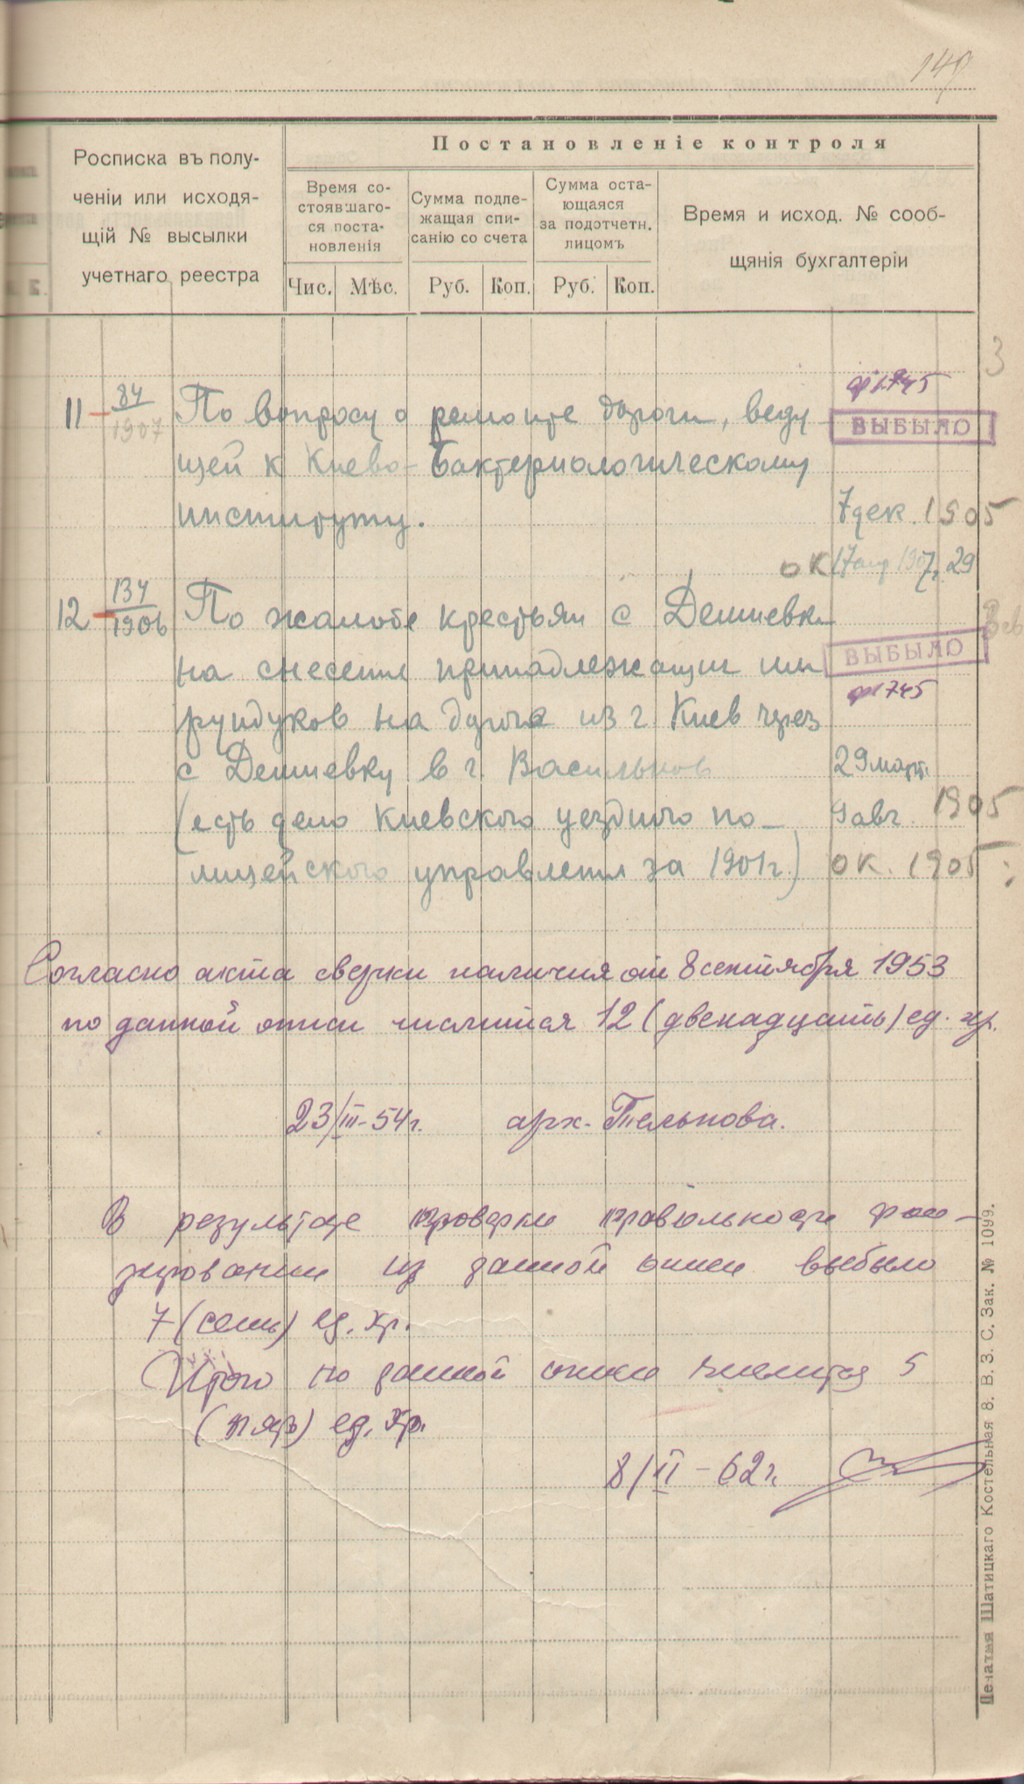 149
Росписка въ полу-
ченіи или исходя-
щій № высылки
учетнаго реестра
Постановленіе контроля
Время со-
стоявшаго-
ся поста-
новленія
Сумма подле-
жащая спи-
санію со счета
Сумма оста-
ющаяся
за подотчетн.
лицомъ
Время и исход. № сооб-
щянія бухгалтеріи
Чис. Мѣс. Руб. Коп. Руб. Коп.
3
ф 1745
11 – 84/1907 По вопросу о ремонте дороги, веду-
ВЫБЫЛО
щей к Киево-Бактериологическому
институту.
7 дек. 1905
ок 17 апр 1907, 29
12 – 134/1906 По жалобе крестьян с Демиевки
ВЫБЫЛО
на снесении принадлежащих им
ф 1745
рундуков на дороге из г. Киев через
с Демиевку в г. Васильков
29 март.
(есть дело Киевского уездного по-
9 авг. 1905
лицейского управления за 1901 г.)
ок. 1905
Согласно акта сверки наличия от 8 сентября 1953
по данной описи числится 12 (двенадцать) ед. хр.
23/III-54 г. арх. Тельнова.
В результате проверки правильности фон-
дирования из данной описи выбыло
7 (семь) ед. хр.
Итого по данной описи числится 5
(пять) ед. хр.
8/II-62 г.
Печатня Шатицкаго Костельная 8. В. З. С. Зак. № 1099.